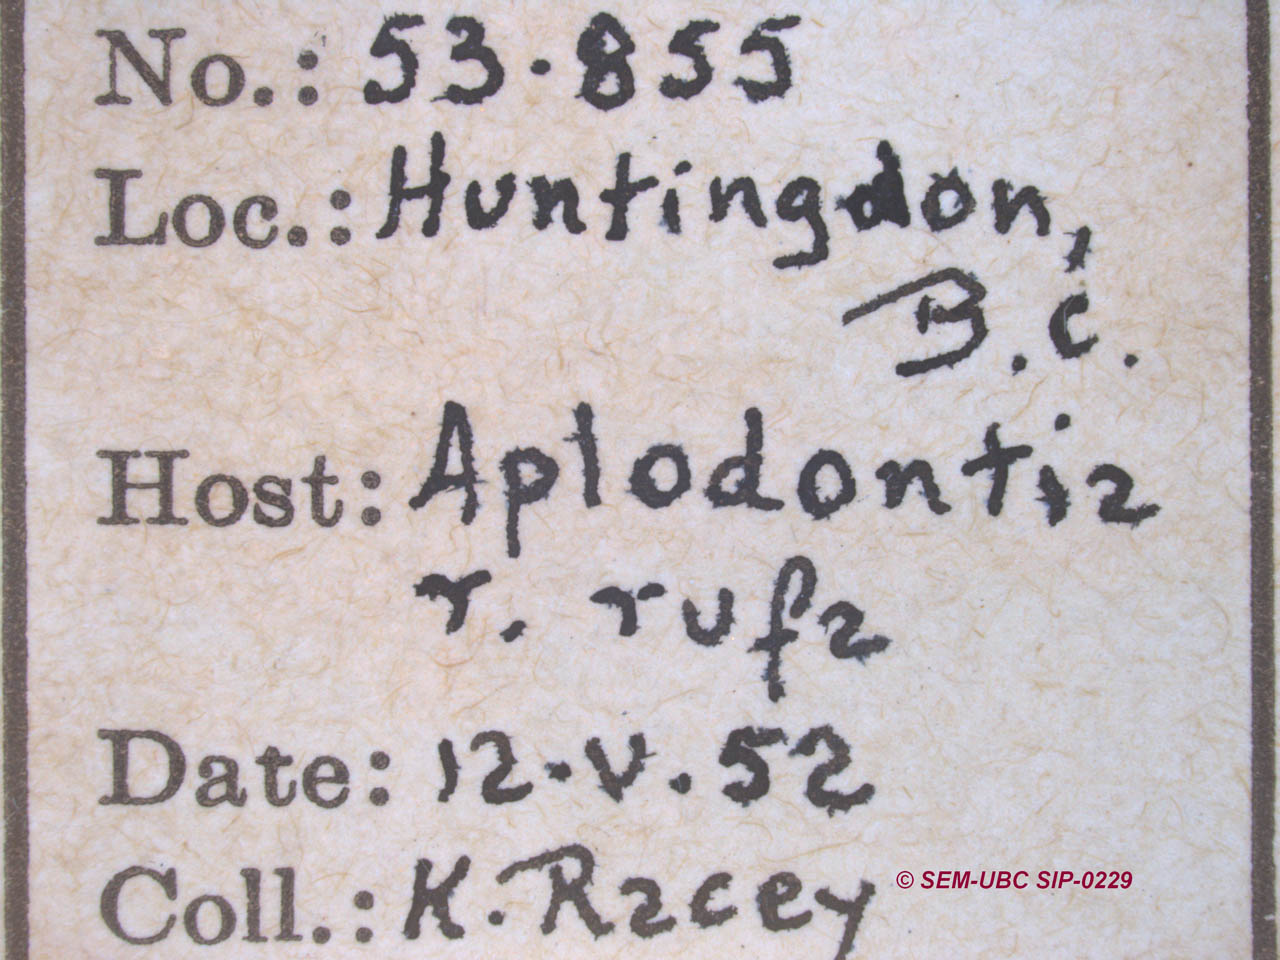 No.: 53.855
Loc.: Huntingdon,
B.C.
Host: Aplodontia
r. rufa
Date: 12.V.52
Coll.: K. Racey
© SEM-UBC SIP-0229